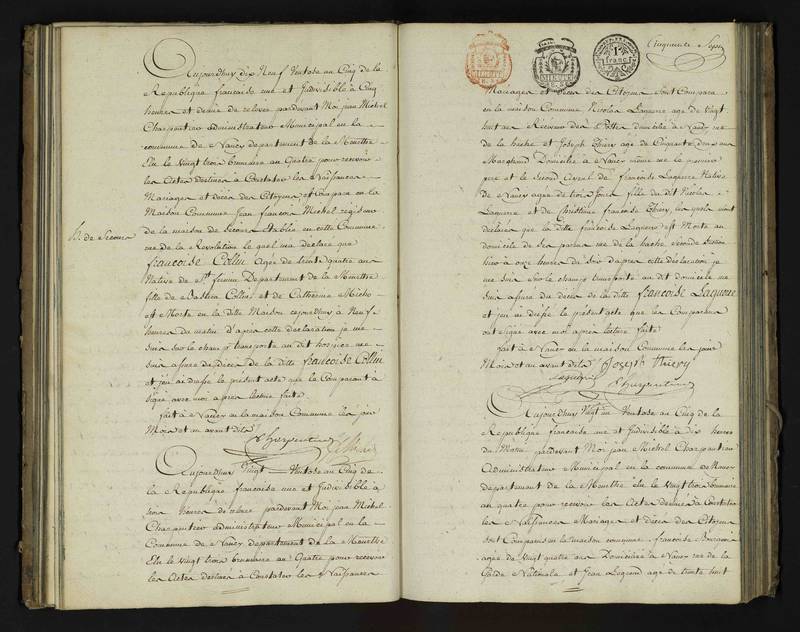 Aujourdhuy dix Neuf Ventose an Cinq de la
Republique francaise une et Indivisible à Cinq
heures et demie de relevée pardevant Moi jean Michel
Charpentier administrateur Municipal en la
commune de Nancy departement de la Meurthe
Elu le vingt trois brumaire an Quatre pour recevoir
les Actes destinés à Constater les Naissances
Mariages et décès des Citoyens, est comparu en la
Maison Commune Jean francois Michel
de la maison de secours établie en cette Commune
rue de la Revolution le quel m'a déclaré que
francoise Collin Agée de trente quatre ans
Native de St. firmin Departement de la Meurthe
fille de Bastien Collin et de Catherine
est Morte en la ditte Maison cejourdhuy à Neuf
heures du matin d'après cette declaration je me
suis sur le champ transporté au dit hospice me
suis assuré du Décès de la ditte francoise Collin
et j'ai dressé le présent acte que le Comparant à
signé avec moi après lecture faite
fait à Nancy en la maison Commune les jour
Mois et an avant dits
Charpentier Michel
H. de Secours
Aujourdhuy Vingt Ventose an Cinq de
la Republique francaise une et Indivisible à
trois heures de relevée pardevant Moi jean Michel
Charpentier administrateur Municipal en la
Commune de Nancy departement de la Meurthe
Elu le vingt trois brumaire an Quatre pour recevoir
les Actes destinés à Constater les Naissances
Cinquante Sept
1 franc
Mariages et décès des Citoyens sont Comparu
en la maison Commune Nicolas Laquerre agé de vingt
huit ans domicilié à Nancy rue
de la hache et Joseph Thiery agé de Cinquante deux ans
Marchand Domicilié à Nancy même rue le premier
pere et le second ayeul de francoise Laquerre Native
de Nancy agée de trois jours fille du dit Nicolas
Laquerre et de Christine francoise Thiery, les quels m'ont
déclaré que la ditte francoise Laquerre est Morte au
domicile de ses pere rue de la hache
hier à onze heures du soir d'après cette déclaration je
me suis sur le champ transporté au dit domicile me
suis assuré du décès de la ditte francoise Laquerre
et j'ai dressé le présent acte que les Comparants
ont signé avec moi après lecture faite
fait à Nancy en la maison Commune les jour
Mois et an avant dits Joseph Thiery
Charpentier
Aujourdhuy Vingt un Ventose an Cinq de la
Republique francaise une et Indivisible à dix heures
du Matin pardevant Moi jean Michel Charpentier
Administrateur Municipal en la commune de Nancy
departement de la Meurthe élu le vingt trois brumaire
an quatre pour recevoir les Actes destinés à Constater
les Naissances Mariages et décès des Citoyens
sont Comparus en la maison commune francoise
agée de vingt quatre ans Domiciliée à Nancy rue de la
Garde Nationale, et Jean Legrand agé de trente huit